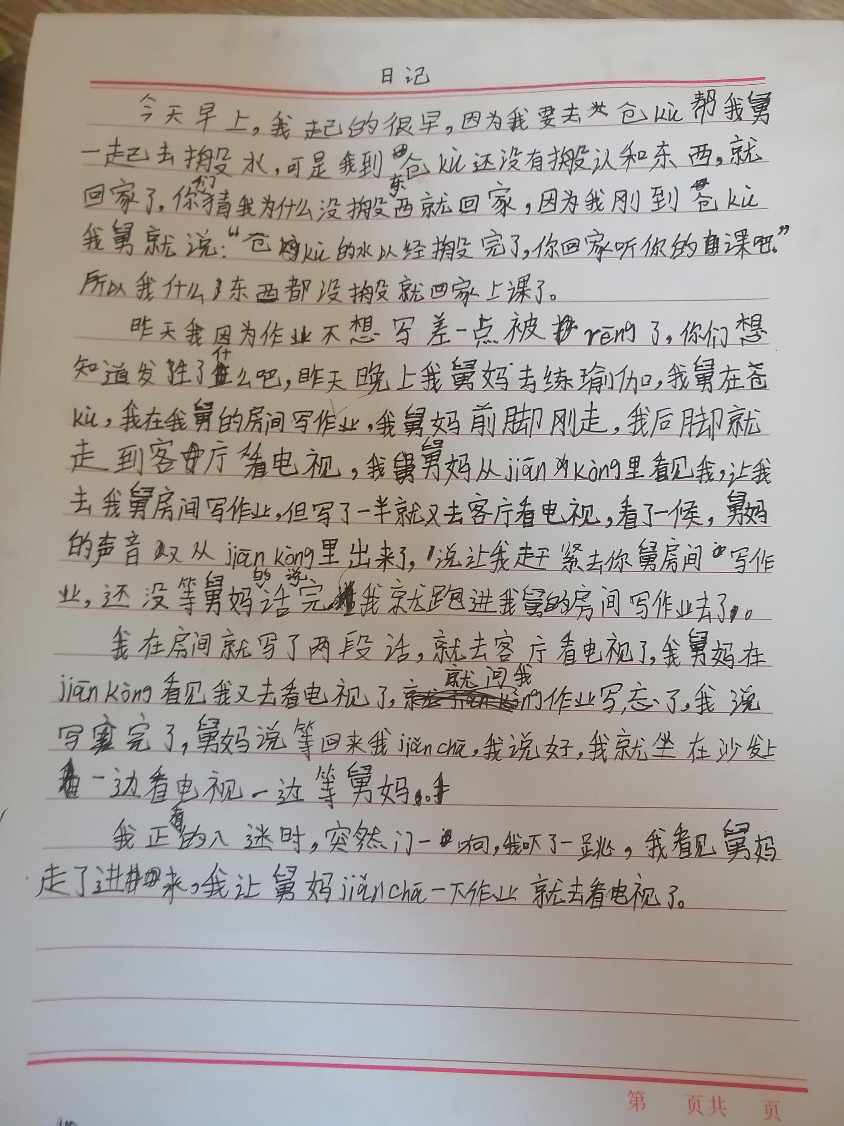 日记
今天早上,我起的很早,因为我要去仓kù帮我舅
一起去搬水,可是我到仓kù还没有搬认和东西,就
回家了,你们猜我为什么没搬东西就回家,因为我刚到仓kù
我舅就说:“仓kù的水以经搬完了,你回家听你的课吧。”
所以我什么东西都没搬就回家上课了。
昨天我因为作业不想写差一点被rēng了,你们想
知道发胜了什么吧,昨天晚上我舅妈去练瑜伽,我舅在仓
kù,我在我舅的房间写作业,我舅妈前脚刚走,我后脚就
走到客厅看电视,我舅妈从jiān kòng里看见我,让我
去我舅房间写作业,但写了一半就又去客厅看电视,看了一候,舅妈
的声音又从jiān kòng里出来了,说让我赶紧去你舅房间写作
业,还没等舅妈的话说完我就跑进我舅的房间写作业去了。
我在房间就写了两段话,就去客厅看电视了,我舅妈在
jiān kòng看见我又去看电视了,就问我作业写完了,我说
写完了,舅妈说等回来我jiǎn chā,我说好,我就坐在沙发上
一边看电视一边等舅妈。
我正看的入迷时,突然门一响,我吓了一跳,我看见舅妈
走了进来,我让舅妈jiǎn chā一下作业就去看电视了。
第 页共 页